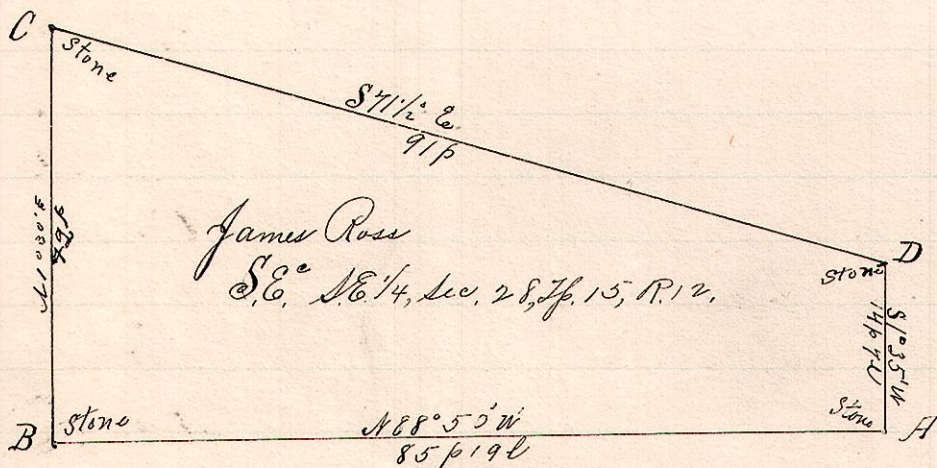 C
Stone
S 71 1/2° E.
91 p
N 1° 30' E
James Ross
S.E.c S.E. 1/4, Sec. 28, Tp. 15, R. 12.
D
Stone
S 1° 35' W
Stone
A
B
Stone
N 88° 55' W
85 p 19 l